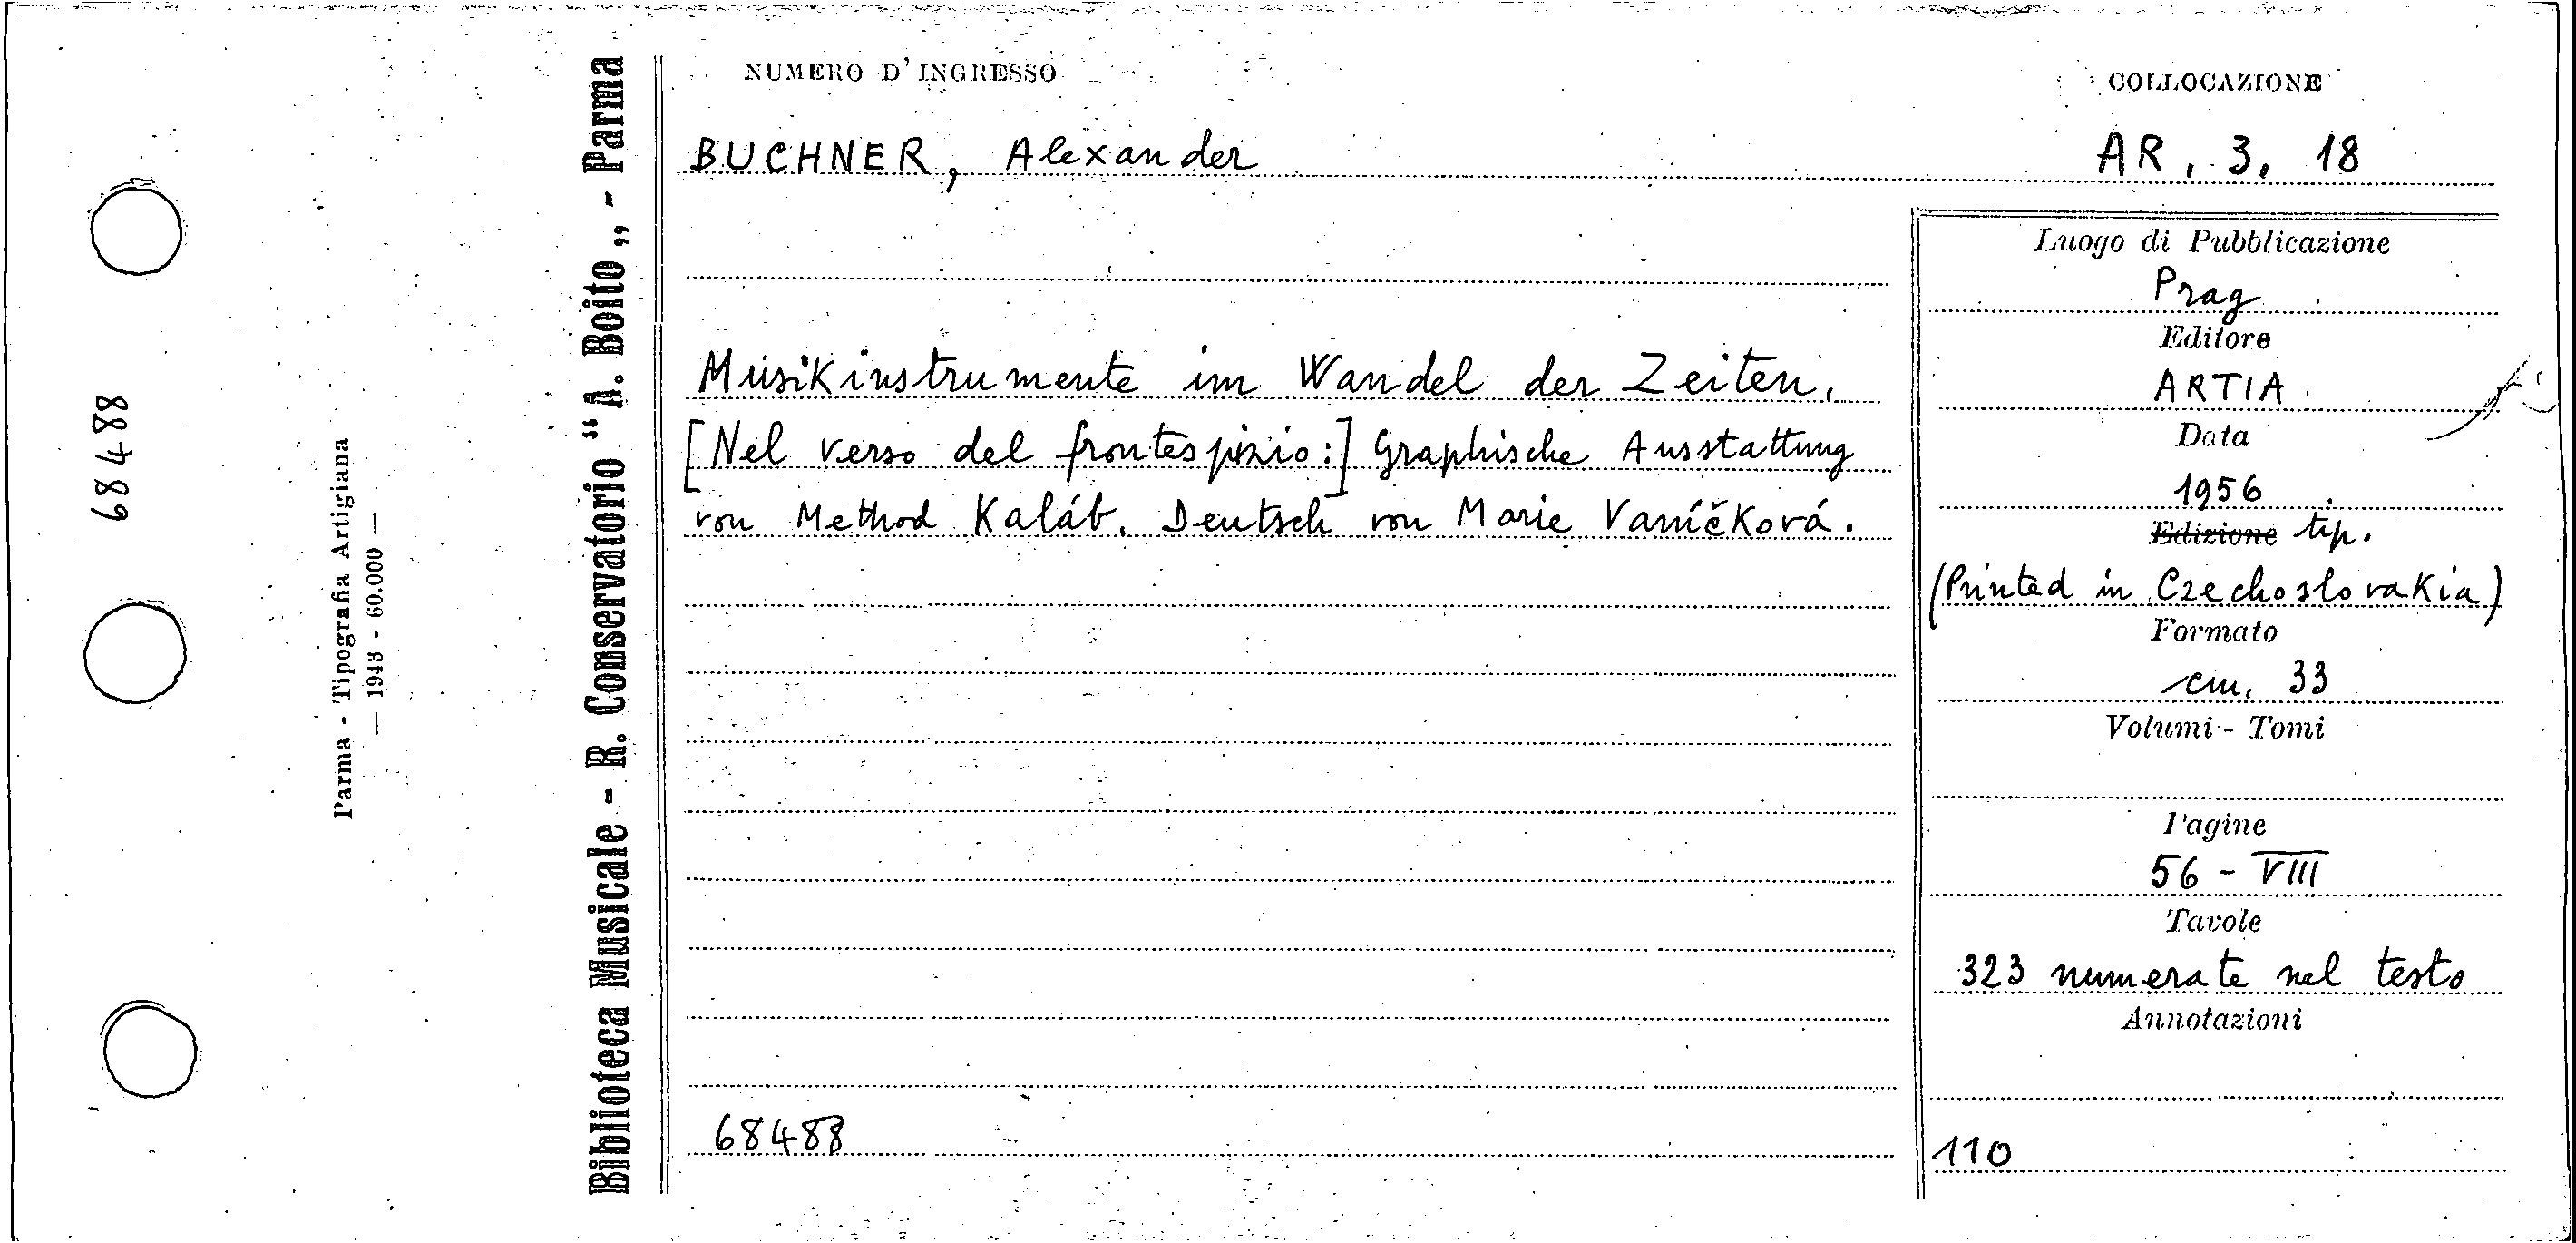 68488
Parma - Tipografia Artigiana
— 1943 - 60.000 —
Biblioteca Musicale - R. Conservatorio “A. Boito„ - Parma
NUMERO D'INGRESSO
COLLOCAZIONE
BUCHNER, Alexander
AR. 3. 18
Musikinstrumente im Wandel der Zeiten.
[Nel verso del frontespizio:] Graphische Ausstattung
von Method Kaláb. Deutsch von Marie Vaníčková.
68488
Luogo di Pubblicazione
Prag
Editore
ARTIA
Data
1956
Edizione tip.
(Printed in Czechoslovakia)
Formato
cm. 33
Volumi - Tomi
Pagine
56 - VIII
Tavole
323 numerate nel testo
Annotazioni
110